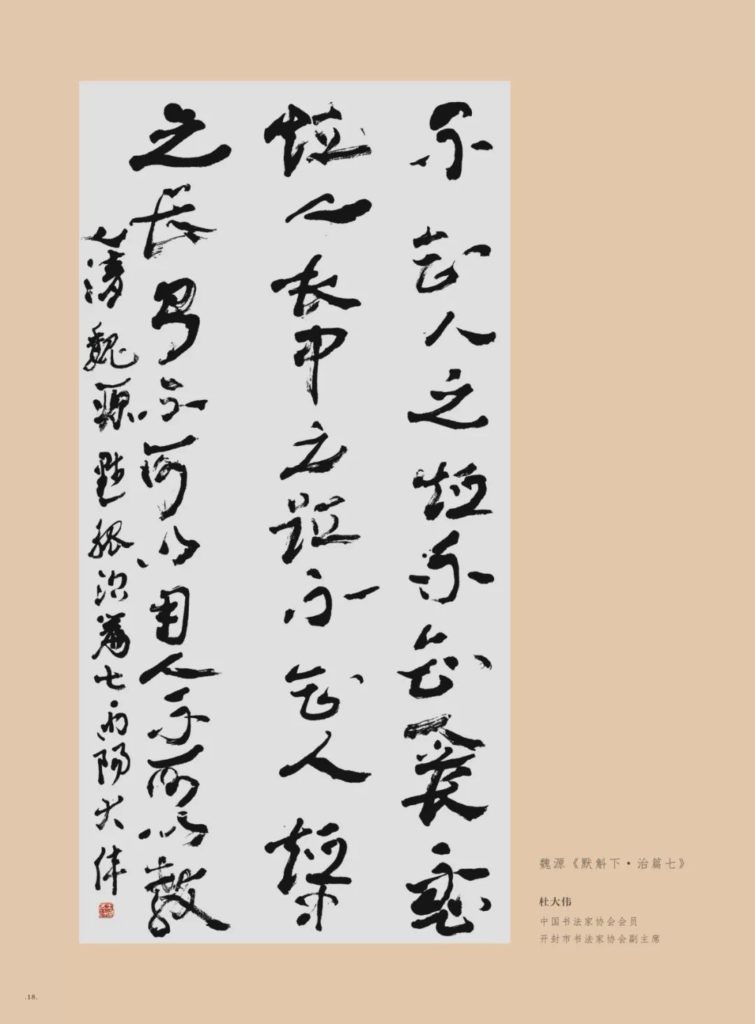 不知人之短不知人之長不知
人長中之短不知人短中
之長則不可以用人不可以教
人 清魏源默觚治篇七 陽大伟
魏源《默斛下·治篇七》
杜大伟
中国书法家协会会员
开封市书法家协会副主席
.18.